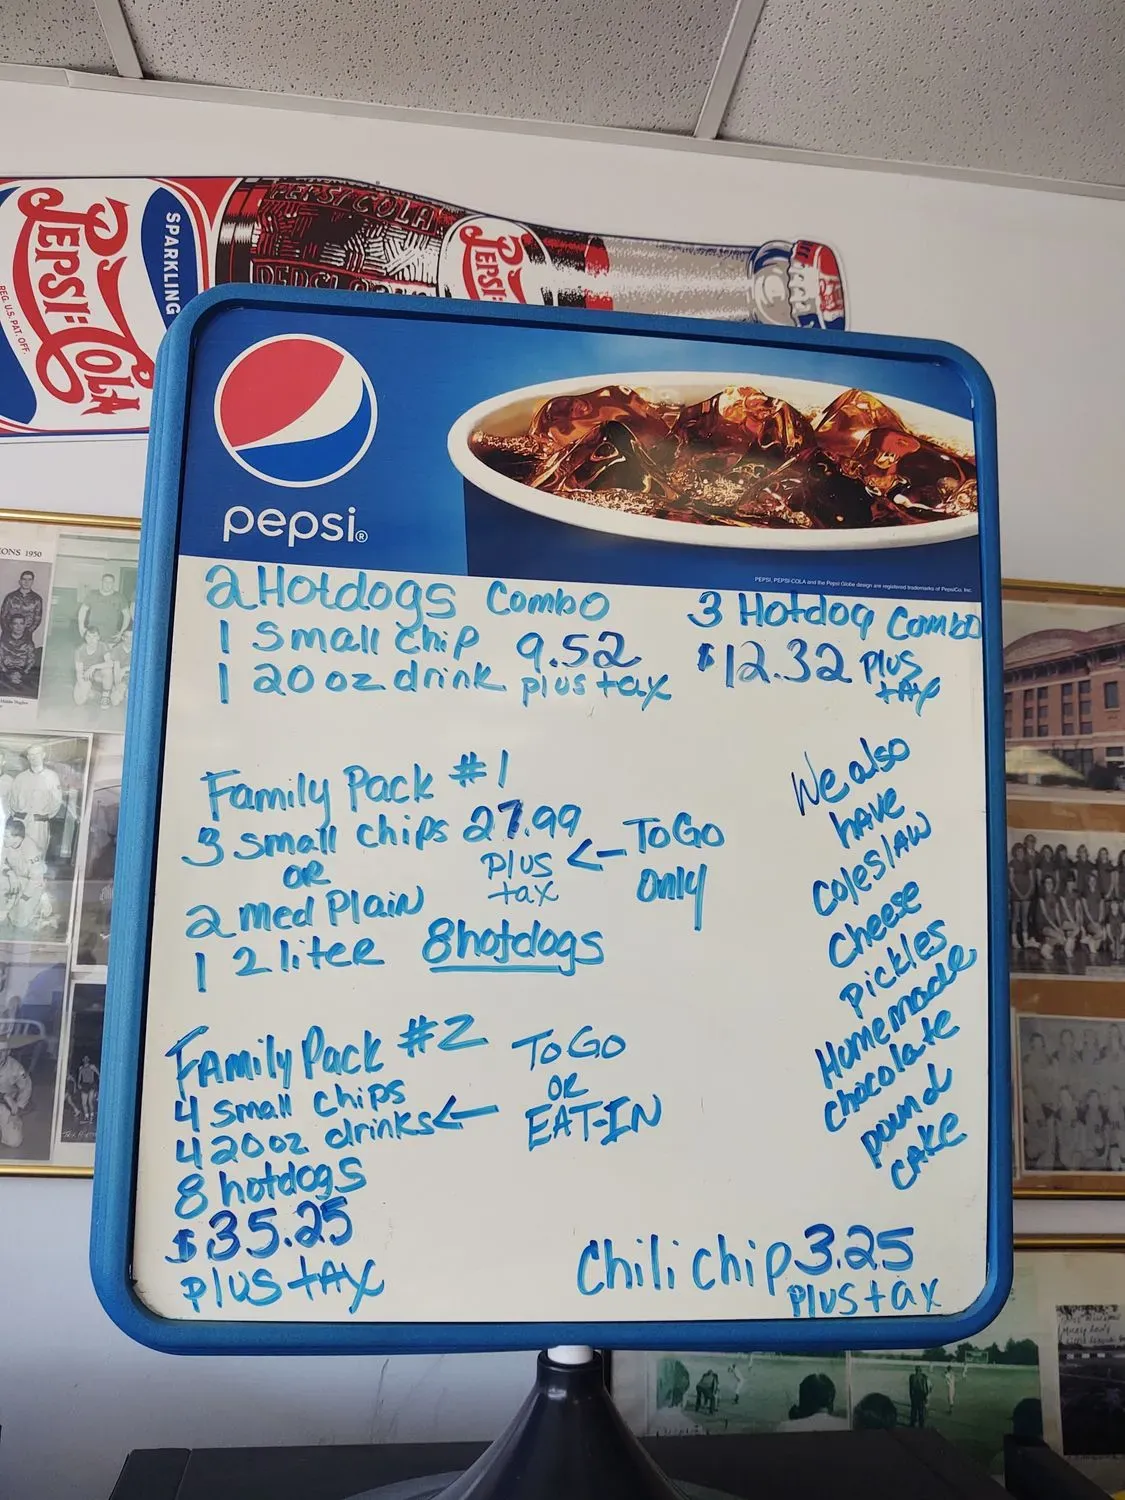 PEPSI-COLA
SPARKLING
REG. U.S. PAT. OFF.
PEPSI-COLA
PEPSI
pepsi®
PEPSI, PEPSI-COLA and the Pepsi Globe design are registered trademarks of PepsiCo, Inc.
2 Hotdogs Combo
1 small chip 9.52
1 20 oz drink plus tax
3 Hotdog Combo
$12.32 plus
tax
Family Pack #1
3 small chips 27.99
OR
plus
tax
2 med Plain
1 2 liter 8 hotdogs
← To Go
only
We also
have
coleslaw
Cheese
Pickles
Homemade
chocolate
pound
cake
Family Pack #2
4 small chips
4 20 oz drinks ←
8 hotdogs
$35.25
plus tax
To Go
OR
EAT-IN
Chili chip 3.25
plus tax
ONS 1950